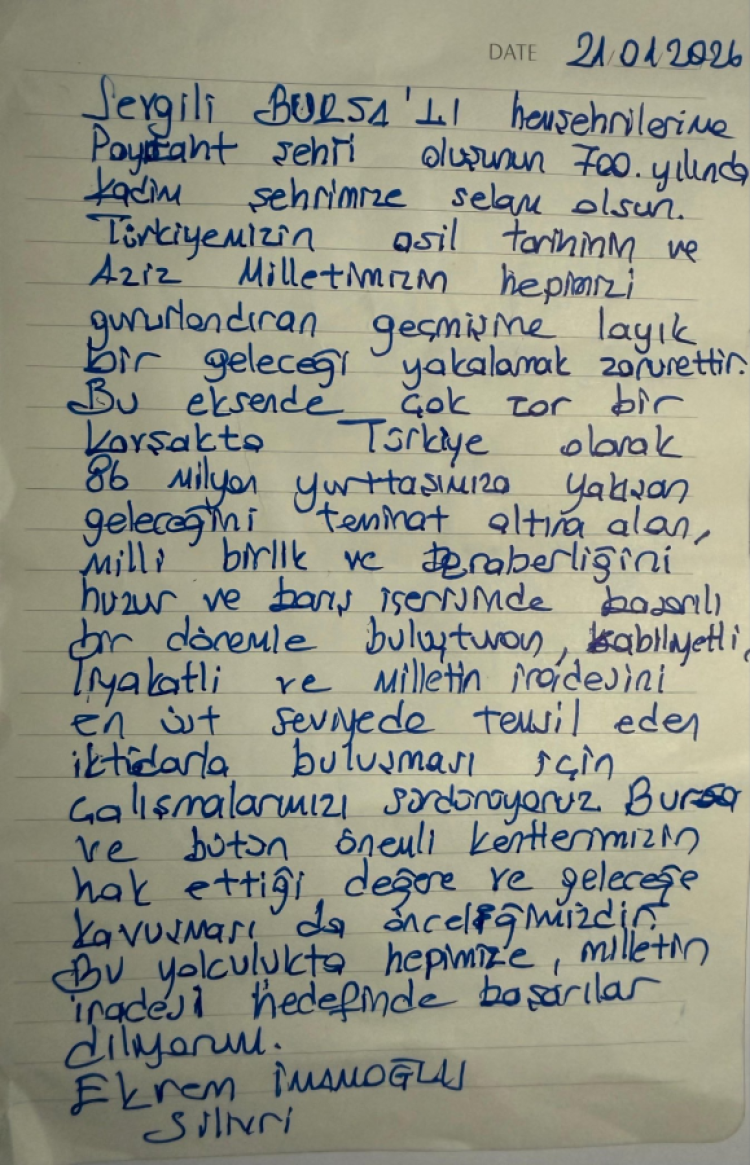 DATE 21.01.2026
Sevgili BURSA'LI hemşehrilerime
Payitaht şehri oluşunun 700. yılında
kadim şehrimize selam olsun.
Türkiyemizin asil tarihinin ve
Aziz Milletimizin hepimizi
gururlandıran geçmişine layık
bir geleceği yakalamak zorurettir.
Bu eksende çok zor bir
kavşakta Türkiye olarak
86 milyon yurttaşımıza yakışan
geleceğini teminat altına alan,
milli birlik ve beraberliğini
huzur ve barış içerisinde başarılı
bir dönemle buluşturan, kabiliyetli,
liyakatli ve milletin iradesini
en üst seviyede temsil eden
iktidarla buluşması için
çalışmalarımızı sürdürüyoruz. Bursa
ve bütün önemli kentlerimizin
hak ettiği değere ve geleceğe
kavuşması da önceliğimizdir.
Bu yolculukta hepimize, milletin
iradesi hedefinde başarılar
diliyorum.
Ekrem İMAMOĞLU
Silivri